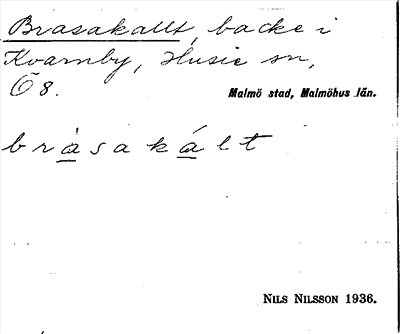 Brasakallt, backe i
Kvarnby, Husie sn,
Ö 8.
Malmö stad, Malmöhus län.
bràsakált
NILS NILSSON 1936.